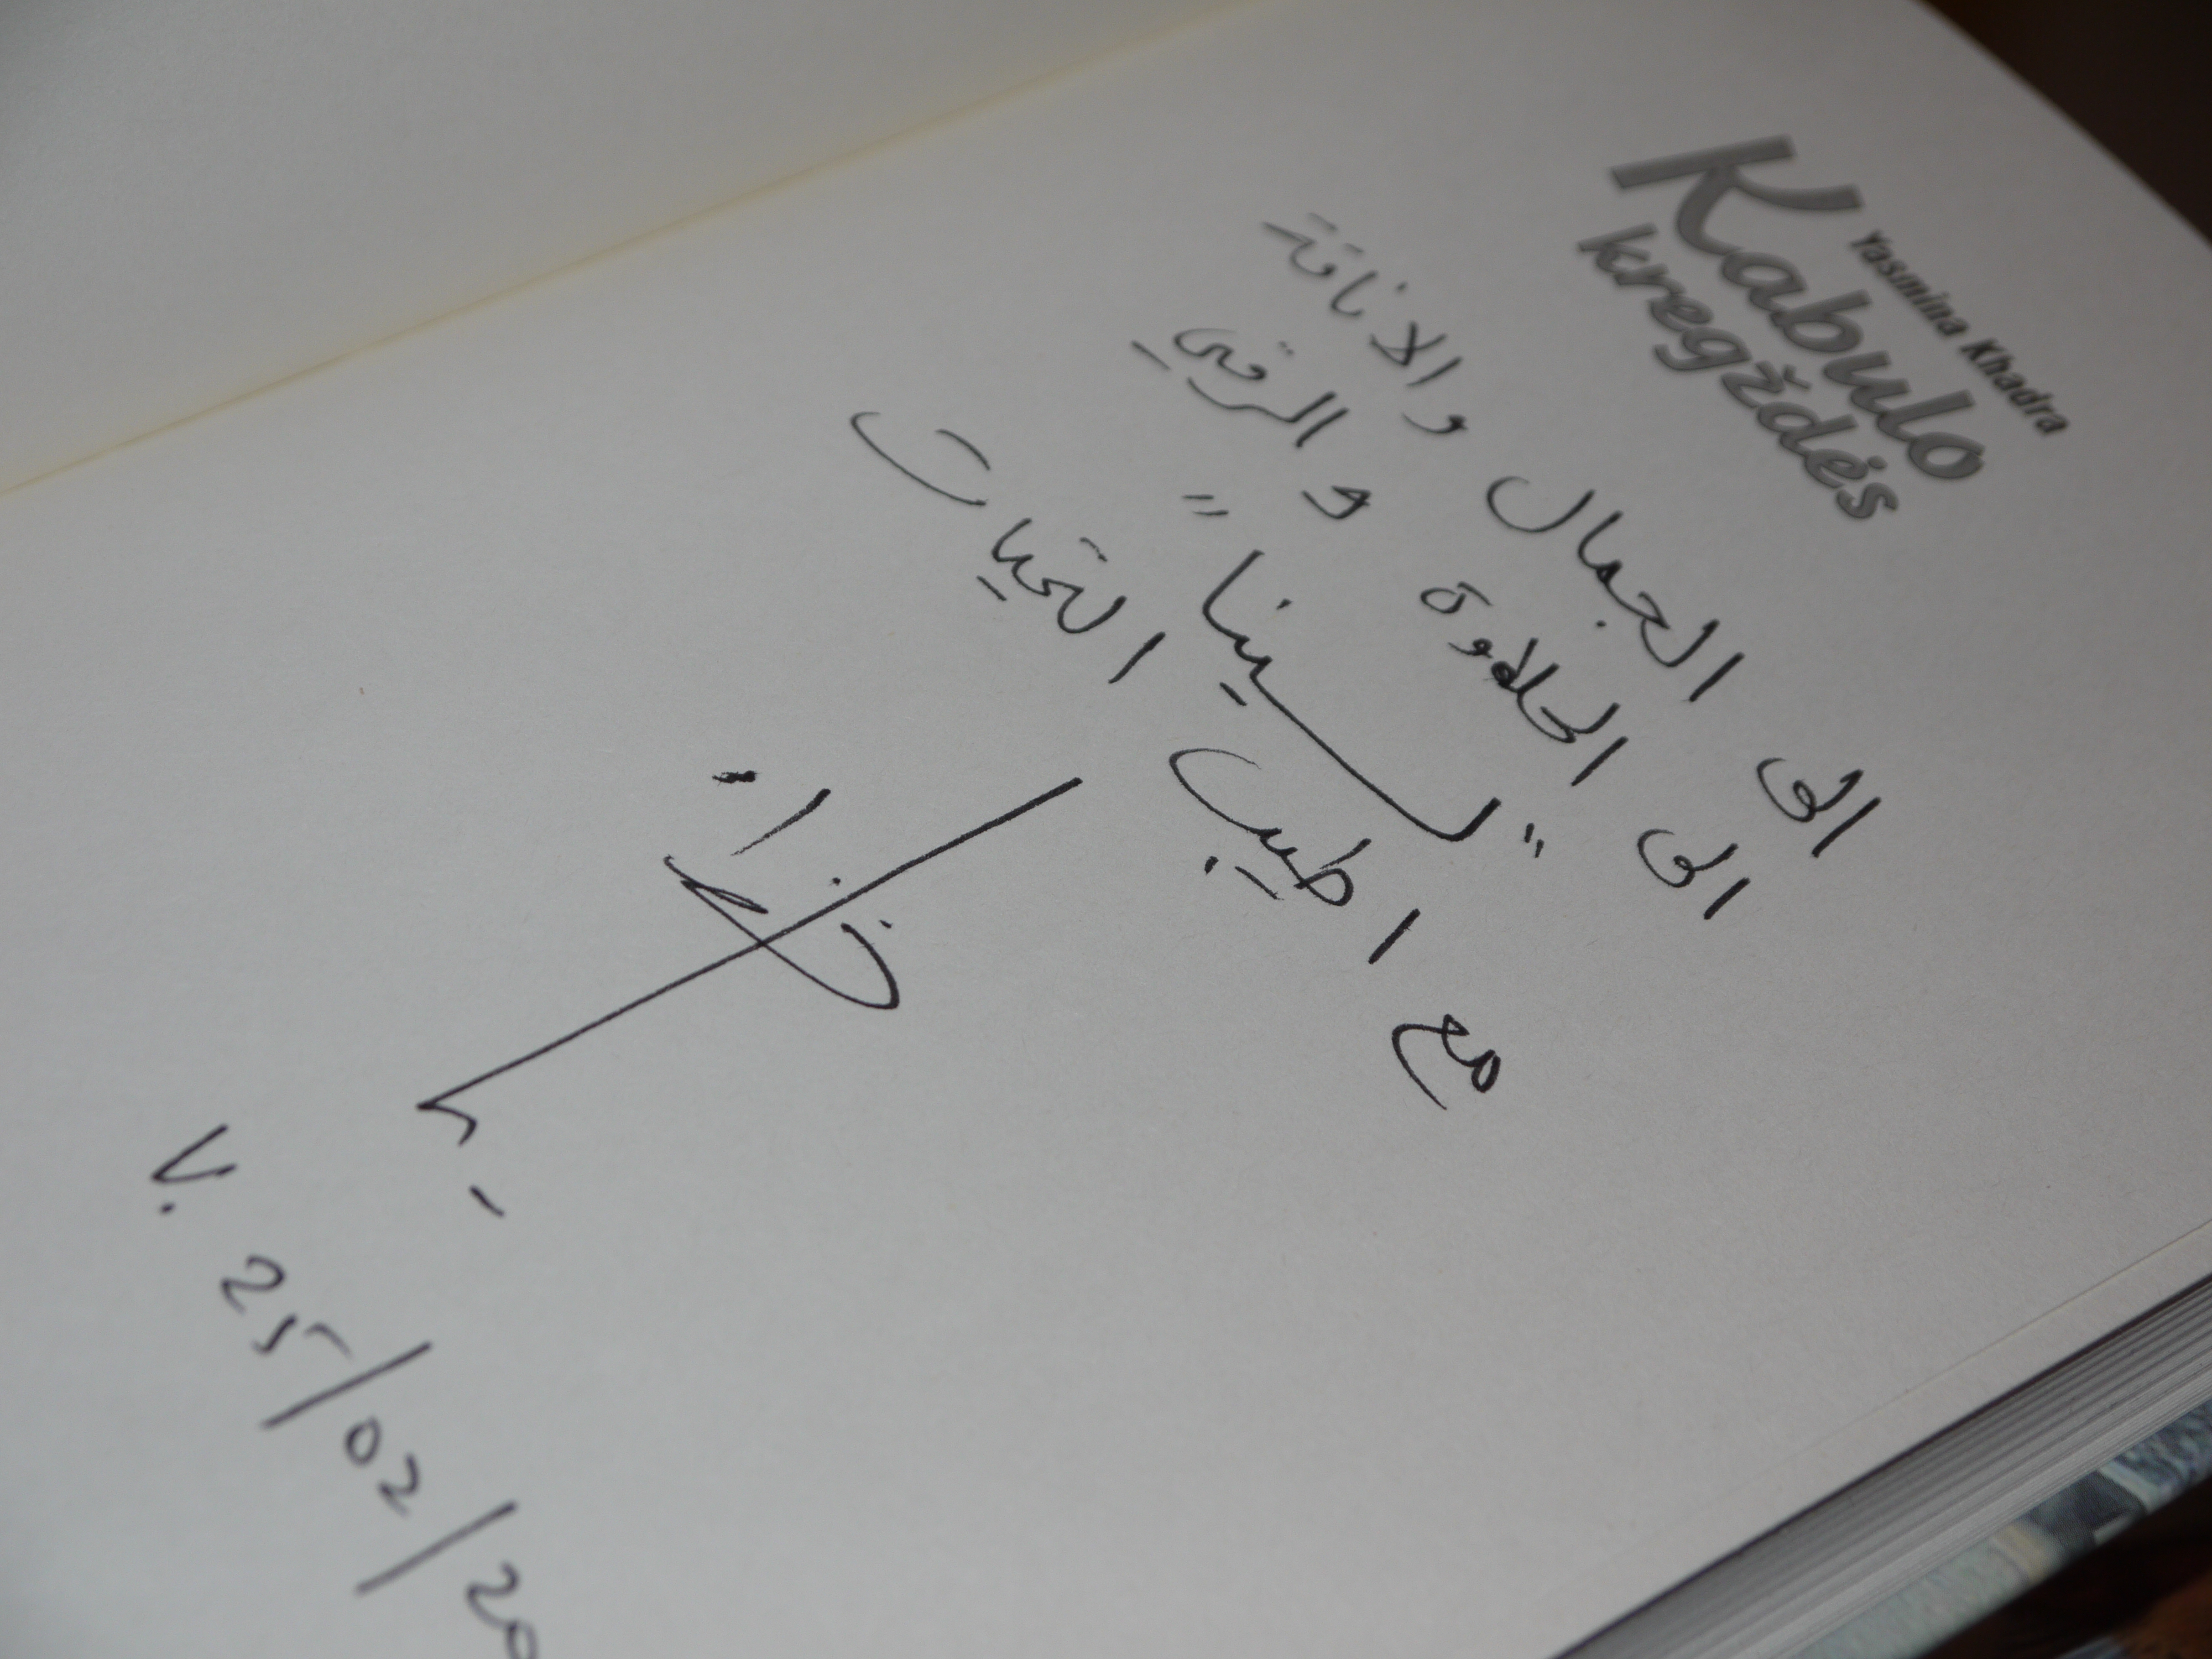 Yasmina Khadra
Kabulo
kregždės
الى الجمال والاناقة
الى الحلاوة و الرقي
"لينا"
مع اطيب التحيات
V. 25/02/20